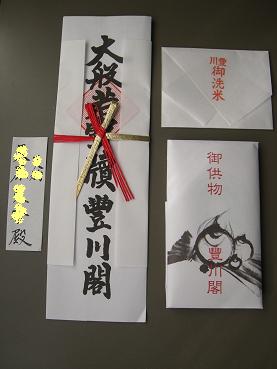 豊川
御洗米
大般若
豊川閣
御供物
豊川閣
殿